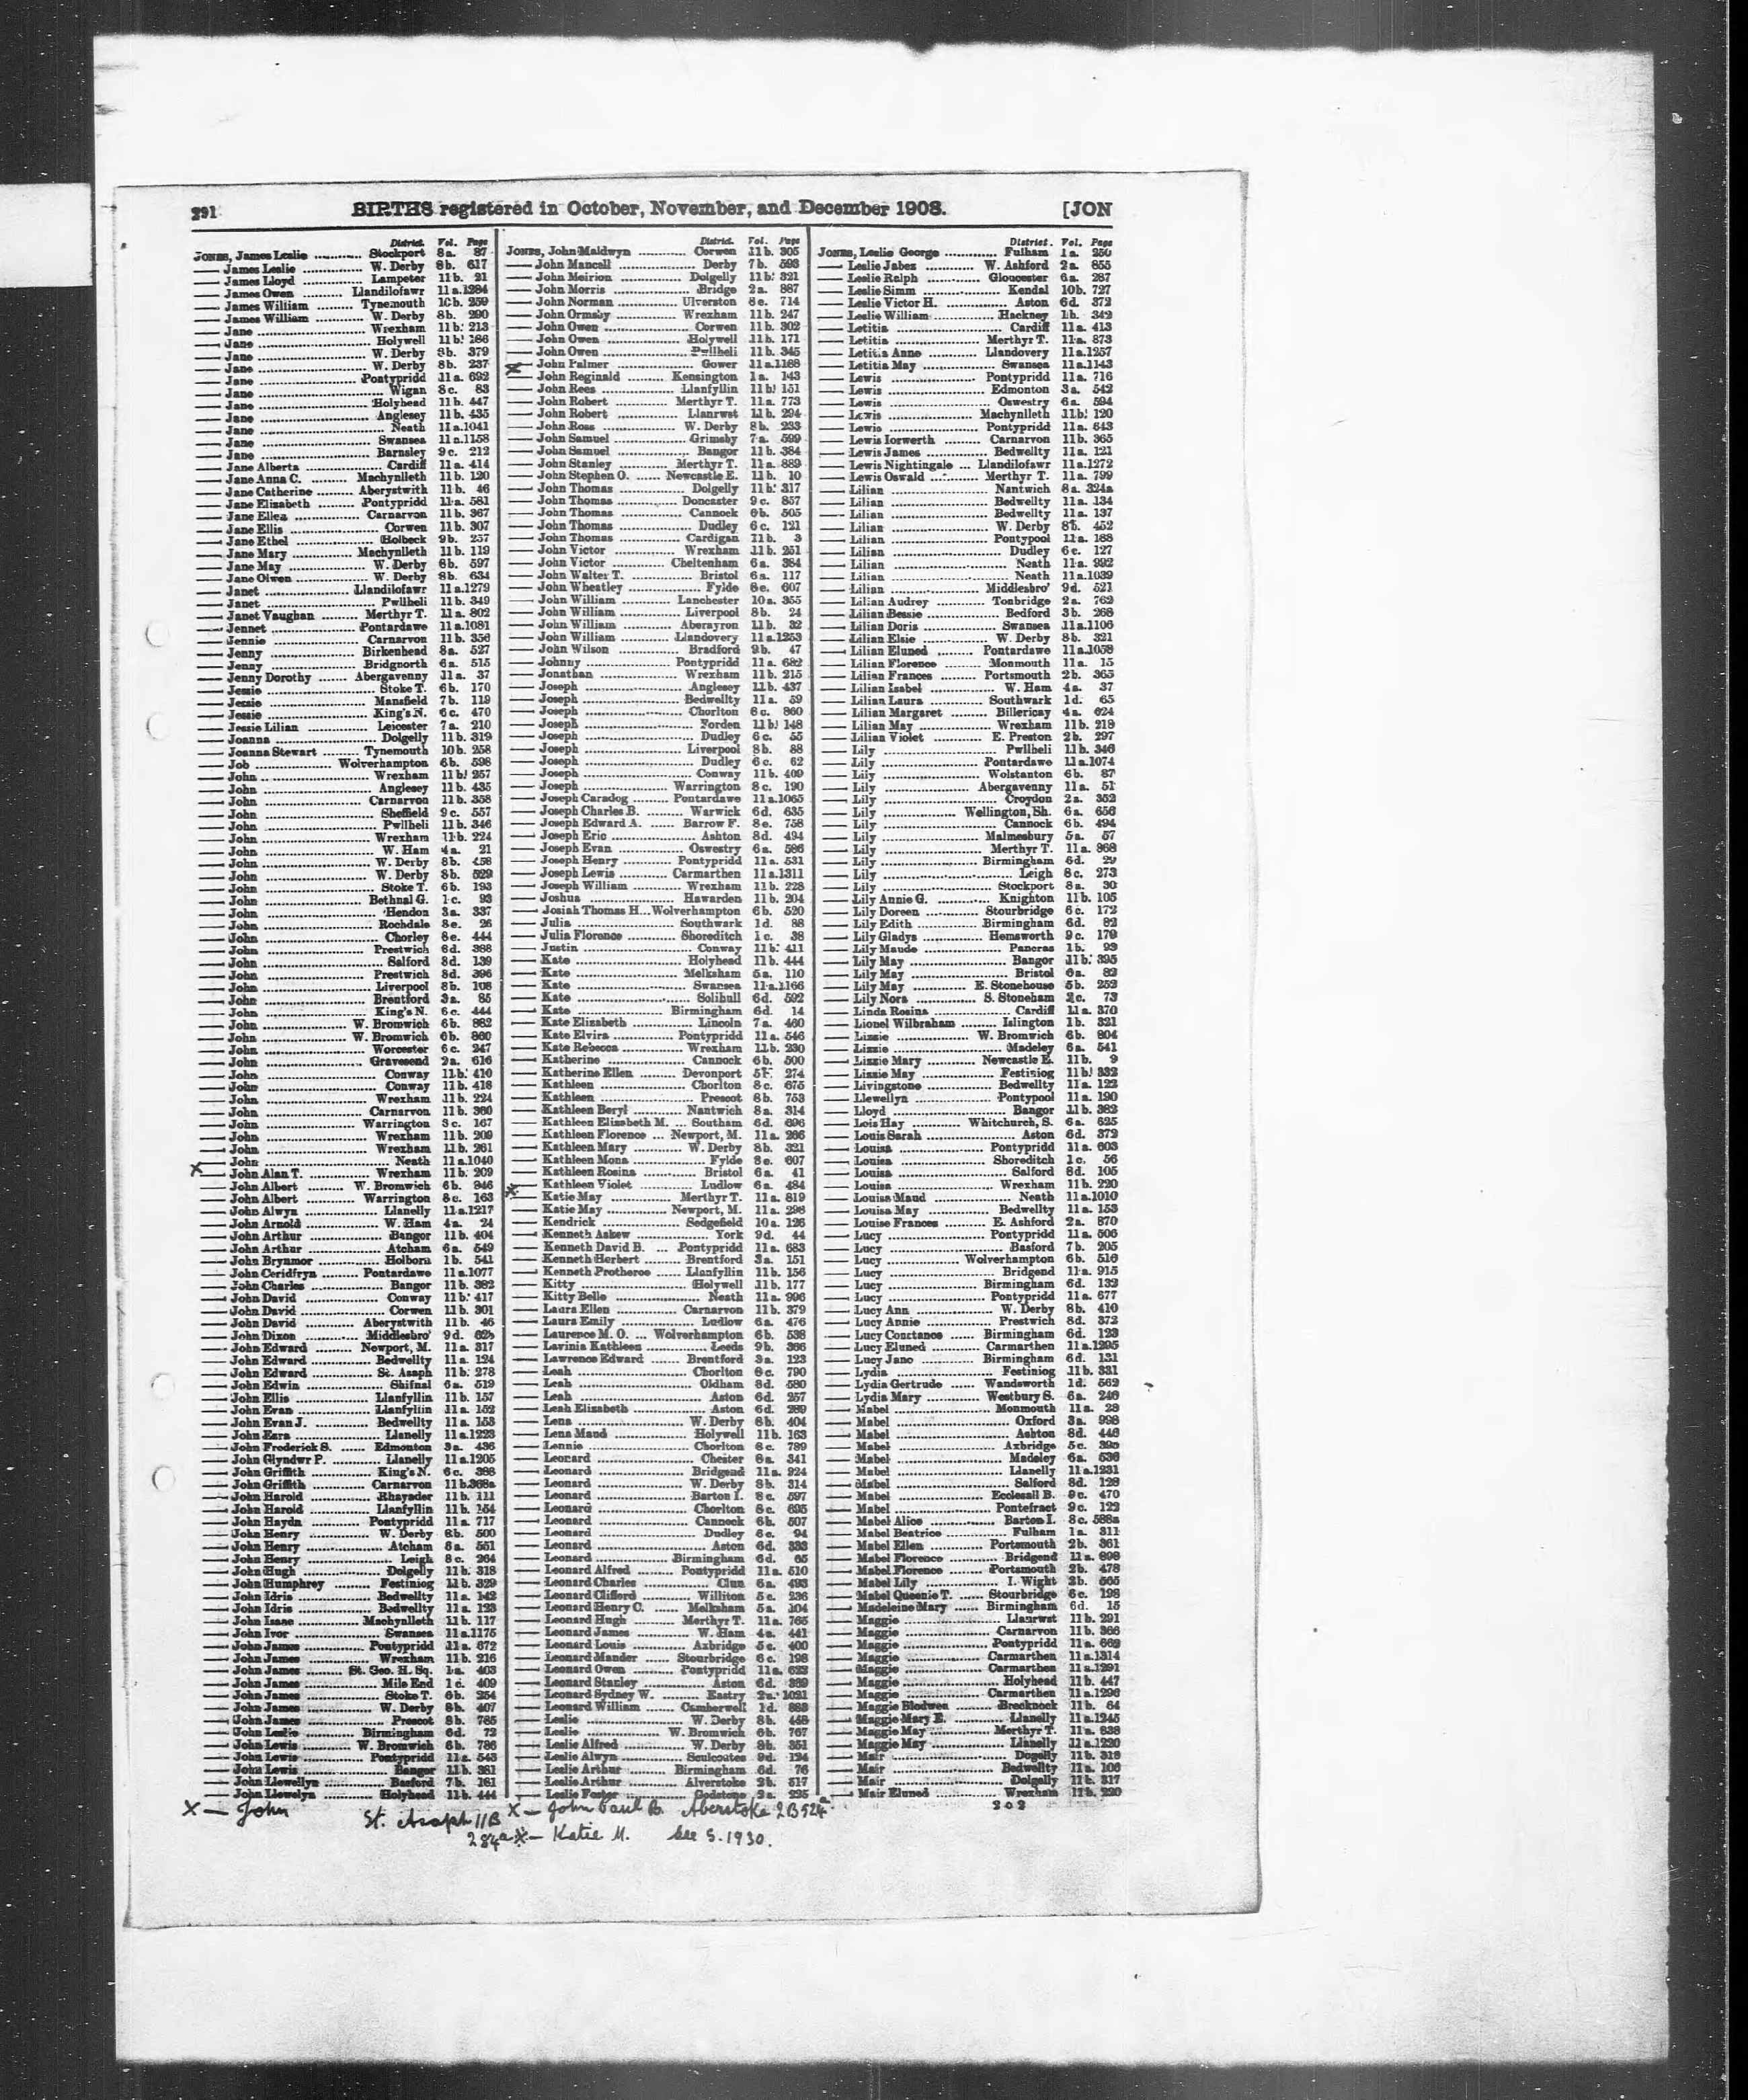 291
BIRTHS registered in October, November, and December 1908.
[JON
District. Vol. Page
JONES, James Leslie ........... Stockport 8a. 87
—— James Leslie ............ W. Derby 8b. 617
—— James Lloyd ........... Lampeter 11b. 21
—— James Owen ......... Llandilofawr 11a.1284
—— James William ........ Tynemouth 10b. 259
—— James William ........ W. Derby 8b. 290
—— Jane ............ Wrexham 11b. 213
—— Jane ............ Holywell 11b. 186
—— Jane ............ W. Derby 8b. 379
—— Jane ............ W. Derby 8b. 237
—— Jane ............ Pontypridd 11a. 692
—— Jane ............ Wigan 8c. 83
—— Jane ............ Holyhead 11b. 447
—— Jane ............ Anglesey 11b. 435
—— Jane ............ Neath 11a.1041
—— Jane ............ Swansea 11a.1158
—— Jane ............ Barnsley 9c. 212
—— Jane Alberta ............ Cardiff 11a. 414
—— Jane Anna C. ........ Machynlleth 11b. 120
—— Jane Catherine ........ Aberystwith 11b. 46
—— Jane Elizabeth ........ Pontypridd 11a. 581
—— Jane Ellen ............ Carnarvon 11b. 367
—— Jane Ellis ............ Corwen 11b. 307
—— Jane Ethel ............ Holbeck 9b. 257
—— Jane Mary ........ Machynlleth 11b. 119
—— Jane May ............ W. Derby 8b. 597
—— Jane Olwen ............ W. Derby 8b. 634
—— Janet ............ Llandilofawr 11a.1279
—— Janet ............ Pwllheli 11b. 349
—— Janet Vaughan ........ Merthyr T. 11a. 802
—— Jennet ............ Pontardawe 11a.1081
—— Jennie ............ Carnarvon 11b. 356
—— Jenny ............ Birkenhead 8a. 527
—— Jenny ............ Bridgnorth 6a. 515
—— Jenny Dorothy ....... Abergavenny 11a. 37
—— Jessie ............ Stoke T. 6b. 170
—— Jessie ............ Mansfield 7b. 119
—— Jessie ............ King's N. 6c. 470
—— Jessie Lilian ............ Leicester 7a. 210
—— Joanna ............ Dolgelly 11b. 319
—— Joanna Stewart ........ Tynemouth 10b. 258
—— Job ............ Wolverhampton 6b. 598
—— John ............ Wrexham 11b. 257
—— John ............ Anglesey 11b. 435
—— John ............ Carnarvon 11b. 358
—— John ............ Sheffield 9c. 557
—— John ............ Pwllheli 11b. 346
—— John ............ Wrexham 11b. 224
—— John ............ W. Ham 4a. 21
—— John ............ W. Derby 8b. 458
—— John ............ W. Derby 8b. 529
—— John ............ Stoke T. 6b. 193
—— John ............ Bethnal G. 1c. 93
—— John ............ Hendon 3a. 337
—— John ............ Rochdale 8e. 26
—— John ............ Chorley 8e. 444
—— John ............ Prestwich 8d. 388
—— John ............ Salford 8d. 139
—— John ............ Prestwich 8d. 396
—— John ............ Liverpool 8b. 108
—— John ............ Brentford 3a. 85
—— John ............ King's N. 6c. 444
—— John ............ W. Bromwich 6b. 882
—— John ............ W. Bromwich 6b. 860
—— John ............ Worcester 6c. 247
—— John ............ Gravesend 2a. 616
—— John ............ Conway 11b. 410
—— John ............ Conway 11b. 418
—— John ............ Wrexham 11b. 224
—— John ............ Carnarvon 11b. 360
—— John ............ Warrington 8c. 167
—— John ............ Wrexham 11b. 209
—— John ............ Wrexham 11b. 261
—— John ............ Neath 11a.1040
X —— John Alan T. ............ Wrexham 11b. 209
—— John Albert ........ W. Bromwich 6b. 846
—— John Albert ........ Warrington 8c. 163
—— John Alwyn ............ Llanelly 11a.1217
—— John Arnold ............ W. Ham 4a. 24
—— John Arthur ............ Bangor 11b. 404
—— John Arthur ............ Atcham 6a. 549
—— John Brynmor ............ Holborn 1b. 541
—— John Ceridfryn ........ Pontardawe 11a.1077
—— John Charles ............ Bangor 11b. 382
—— John David ............ Conway 11b. 417
—— John David ............ Corwen 11b. 301
—— John David ............ Aberystwith 11b. 46
—— John Dixon ............ Middlesbro' 9d.
—— John Edward ........ Newport, M. 11a. 317
—— John Edward ............ Bedwellty 11a. 124
—— John Edward ............ St. Asaph 11b. 278
—— John Edwin ............ Shifnal 6a. 519
—— John Ellis ............ Llanfyllin 11b. 157
—— John Evan ............ Llanfyllin 11a. 152
—— John Evan J. ............ Bedwellty 11a. 153
—— John Ezra ............ Llanelly 11a.1223
—— John Frederick S. ...... Edmonton 3a. 436
—— John Glyndwr P. ........ Llanelly 11a.1205
—— John Griffith ............ King's N. 6c. 388
—— John Griffith ............ Carnarvon 11b.368a
—— John Harold ............ Rhayader 11b. 111
—— John Harold ............ Llanfyllin 11b. 154
—— John Haydn ............ Pontypridd 11a. 717
—— John Henry ............ W. Derby 8b. 500
—— John Henry ............ Atcham 6a. 551
—— John Henry ............ Leigh 8c. 264
—— John Hugh ............ Dolgelly 11b. 318
—— John Humphrey ........ Festiniog 11b. 329
—— John Idris ............ Bedwellty 11a. 142
—— John Idris ............ Bedwellty 11a. 123
—— John Isaac ............ Machynlleth 11b. 117
—— John Ivor ............ Swansea 11a.1175
—— John James ............ Pontypridd 11a. 672
—— John James ............ Wrexham 11b. 216
—— John James ........ St. Geo. H. Sq. 1a. 403
—— John James ............ Mile End 1c. 409
—— John James ............ Stoke T. 6b. 254
—— John James ............ W. Derby 8b. 407
—— John James ............ Prescot 8b. 785
—— John Leslie ............ Birmingham 6d. 72
—— John Lewis ........ W. Bromwich 6b. 786
—— John Lewis ............ Pontypridd 11a. 543
—— John Lewis ............ Bangor 11b. 381
—— John Llewellyn ............ Basford 7b. 161
—— John Llewelyn ............ Holyhead 11b. 444
X — John St. Asaph 11B 284a
District. Vol. Page
JONES, John Maldwyn ........... Corwen 11b. 305
—— John Mancell ............ Derby 7b. 593
—— John Meirion ............ Dolgelly 11b. 321
—— John Morris ............ Bridge 2a. 887
—— John Norman ............ Ulverston 8e. 714
—— John Ormsby ............ Wrexham 11b. 247
—— John Owen ............ Corwen 11b. 302
—— John Owen ............ Holywell 11b. 171
—— John Owen ............ Pwllheli 11b. 345
X —— John Palmer ............ Gower 11a.1188
—— John Reginald ........ Kensington 1a. 143
—— John Rees ............ Llanfyllin 11b. 151
—— John Robert ............ Merthyr T. 11a. 773
—— John Robert ............ Llanrwst 11b. 294
—— John Ross ............ W. Derby 8b. 233
—— John Samuel ............ Grimsby 7a. 599
—— John Samuel ............ Bangor 11b. 384
—— John Stanley ............ Merthyr T. 11a. 889
—— John Stephen O. ...... Newcastle E. 11b. 10
—— John Thomas ............ Dolgelly 11b. 317
—— John Thomas ............ Doncaster 9c. 857
—— John Thomas ............ Cannock 6b. 505
—— John Thomas ............ Dudley 6c. 121
—— John Thomas ............ Cardigan 11b. 3
—— John Victor ............ Wrexham 11b. 251
—— John Victor ............ Cheltenham 6a. 384
—— John Walter T. ............ Bristol 6a. 117
—— John Wheatley ............ Fylde 8e. 607
—— John William ............ Lanchester 10a. 355
—— John William ............ Liverpool 8b. 24
—— John William ............ Aberayron 11b. 32
—— John William ............ Llandovery 11a.1253
—— John Wilson ............ Bradford 9b. 47
—— Johnny ............ Pontypridd 11a. 682
—— Jonathan ............ Wrexham 11b. 215
—— Joseph ............ Anglesey 11b. 437
—— Joseph ............ Bedwellty 11a. 59
—— Joseph ............ Chorlton 8c. 860
—— Joseph ............ Forden 11b. 148
—— Joseph ............ Dudley 6c. 55
—— Joseph ............ Liverpool 8b. 88
—— Joseph ............ Dudley 6c. 62
—— Joseph ............ Conway 11b. 409
—— Joseph ............ Warrington 8c. 190
—— Joseph Caradog ........ Pontardawe 11a.1065
—— Joseph Charles B. ........ Warwick 6d. 635
—— Joseph Edward A. ...... Barrow F. 8e. 758
—— Joseph Eric ............ Ashton 8d. 494
—— Joseph Evan ............ Oswestry 6a. 586
—— Joseph Henry ........ Pontypridd 11a. 531
—— Joseph Lewis ............ Carmarthen 11a.1311
—— Joseph William ........ Wrexham 11b. 228
—— Joshua ............ Hawarden 11b. 204
—— Josiah Thomas H... Wolverhampton 6b. 520
—— Julia ............ Southwark 1d. 88
—— Julia Florence ........ Shoreditch 1c. 38
—— Justin ............ Conway 11b. 411
—— Kate ............ Holyhead 11b. 444
—— Kate ............ Melksham 5a. 110
—— Kate ............ Swansea 11a.1166
—— Kate ............ Solihull 6d. 592
—— Kate ............ Birmingham 6d. 14
—— Kate Elizabeth ............ Lincoln 7a. 460
—— Kate Elvira ............ Pontypridd 11a. 546
—— Kate Rebecca ............ Wrexham 11b. 230
—— Katherine ............ Cannock 6b. 500
—— Katherine Ellen ........ Devonport 5b. 274
—— Kathleen ............ Chorlton 8c. 675
—— Kathleen ............ Prescot 8b. 753
—— Kathleen Beryl ........ Nantwich 8a. 314
—— Kathleen Elizabeth M. ... Southam 6d. 696
—— Kathleen Florence ... Newport, M. 11a. 266
—— Kathleen Mary ........ W. Derby 8b. 321
—— Kathleen Mona ............ Fylde 8e. 607
—— Kathleen Rosina ............ Bristol 6a. 41
—— Kathleen Violet ............ Ludlow 6a. 484
X —— Katie May ............ Merthyr T. 11a. 819
—— Katie May ............ Newport, M. 11a. 298
—— Kendrick ............ Sedgefield 10a. 126
—— Kenneth Askew ............ York 9d. 44
—— Kenneth David B. ... Pontypridd 11a. 683
—— Kenneth Herbert ........ Brentford 3a. 151
—— Kenneth Protheroe ...... Llanfyllin 11b. 156
—— Kitty ............ Holywell 11b. 177
—— Kitty Belle ............ Neath 11a. 996
—— Laura Ellen ............ Carnarvon 11b. 379
—— Laura Emily ............ Ludlow 6a. 476
—— Laurence M. O. ... Wolverhampton 6b. 538
—— Lavinia Kathleen ............ Leeds 9b. 366
—— Lawrence Edward ...... Brentford 3a. 123
—— Leah ............ Chorlton 8c. 790
—— Leah ............ Oldham 8d. 580
—— Leah ............ Aston 6d. 257
—— Leah Elizabeth ............ Aston 6d. 289
—— Lena ............ W. Derby 8b. 404
—— Lena Maud ............ Holywell 11b. 163
—— Lennie ............ Chorlton 8c. 789
—— Leonard ............ Chester 8a. 341
—— Leonard ............ Bridgend 11a. 924
—— Leonard ............ W. Derby 8b. 314
—— Leonard ............ Barton I. 8c. 597
—— Leonard ............ Chorlton 8c. 695
—— Leonard ............ Cannock 6b. 507
—— Leonard ............ Dudley 6c. 94
—— Leonard ............ Aston 6d. 333
—— Leonard ............ Birmingham 6d. 65
—— Leonard Alfred ........ Pontypridd 11a. 510
—— Leonard Charles ............ Clun 6a. 493
—— Leonard Clifford ........ Williton 5c. 236
—— Leonard Henry C. ...... Melksham 5a. 104
—— Leonard Hugh ........ Merthyr T. 11a. 765
—— Leonard James ............ W. Ham 4a. 441
—— Leonard Louis ............ Axbridge 5c. 400
—— Leonard Mander ...... Stourbridge 6c. 198
—— Leonard Owen ........ Pontypridd 11a. 623
—— Leonard Stanley ............ Aston 6d. 369
—— Leonard Sydney W. ........ Eastry 2a. 1021
—— Leonard William ...... Camberwell 1d. 883
—— Leslie ............ W. Derby 8b. 448
—— Leslie ............ W. Bromwich 6b. 767
—— Leslie Alfred ............ W. Derby 8b. 351
—— Leslie Alwyn ............ Sculcoates 9d. 124
—— Leslie Arthur ............ Birmingham 6d. 76
—— Leslie Arthur ............ Alverstoke 2b. 517
—— Leslie Foster ............ Godstone 2a. 225
X — John Paul B. Aberstoke 2B 524a
X — Katie M. See S. 1930.
District. Vol. Page
JONES, Leslie George ............ Fulham 1a. 250
—— Leslie Jabez ............ W. Ashford 2a. 855
—— Leslie Ralph ............ Gloucester 6a. 287
—— Leslie Simm ............ Kendal 10b. 727
—— Leslie Victor H. ............ Aston 6d. 372
—— Leslie William ............ Hackney 1b. 342
—— Letitia ............ Cardiff 11a. 413
—— Letitia ............ Merthyr T. 11a. 873
—— Letitia Anne ............ Llandovery 11a.1257
—— Letitia May ............ Swansea 11a.1143
—— Lewis ............ Pontypridd 11a. 716
—— Lewis ............ Edmonton 3a. 542
—— Lewis ............ Oswestry 6a. 594
—— Lewis ............ Machynlleth 11b. 120
—— Lewis ............ Pontypridd 11a. 643
—— Lewis Iorwerth ........ Carnarvon 11b. 365
—— Lewis James ............ Bedwellty 11a. 121
—— Lewis Nightingale ... Llandilofawr 11a.1272
—— Lewis Oswald ........ Merthyr T. 11a. 799
—— Lilian ............ Nantwich 8a. 324a
—— Lilian ............ Bedwellty 11a. 134
—— Lilian ............ Bedwellty 11a. 137
—— Lilian ............ W. Derby 8b. 452
—— Lilian ............ Pontypool 11a. 188
—— Lilian ............ Dudley 6c. 127
—— Lilian ............ Neath 11a. 992
—— Lilian ............ Neath 11a.1039
—— Lilian ............ Middlesbro' 9d. 521
—— Lilian Audrey ............ Tonbridge 2a. 762
—— Lilian Bessie ............ Bedford 3b. 268
—— Lilian Doris ............ Swansea 11a.1106
—— Lilian Elsie ............ W. Derby 8b. 321
—— Lilian Eluned ........ Pontardawe 11a.1058
—— Lilian Florence ........ Monmouth 11a. 15
—— Lilian Frances ........ Portsmouth 2b. 365
—— Lilian Isabel ............ W. Ham 4a. 37
—— Lilian Laura ............ Southwark 1d. 65
—— Lilian Margaret ........ Billericay 4a. 624
—— Lilian May ............ Wrexham 11b. 218
—— Lilian Violet ............ E. Preston 2b. 297
—— Lily ............ Pwllheli 11b. 346
—— Lily ............ Pontardawe 11a.1074
—— Lily ............ Wolstanton 6b. 87
—— Lily ............ Abergavenny 11a. 51
—— Lily ............ Croydon 2a. 352
—— Lily ............ Wellington, Sh. 6a. 656
—— Lily ............ Cannock 6b. 494
—— Lily ............ Malmesbury 5a. 57
—— Lily ............ Merthyr T. 11a. 868
—— Lily ............ Birmingham 6d. 29
—— Lily ............ Leigh 8c. 273
—— Lily ............ Stockport 8a. 30
—— Lily Annie G. ............ Knighton 11b. 105
—— Lily Doreen ............ Stourbridge 6c. 172
—— Lily Edith ............ Birmingham 6d. 82
—— Lily Gladys ............ Hemsworth 9c. 179
—— Lily Maude ............ Pancras 1b. 99
—— Lily May ............ Bangor 11b. 395
—— Lily May ............ Bristol 6a. 82
—— Lily May ........ E. Stonehouse 5b. 252
—— Lily Nora ............ S. Stoneham 2c. 73
—— Linda Rosina ............ Cardiff 11a. 370
—— Lionel Wilbraham ........ Islington 1b. 321
—— Lizzie ............ W. Bromwich 6b. 804
—— Lizzie ............ Madeley 6a. 541
—— Lizzie Mary ........ Newcastle E. 11b. 9
—— Lizzie May ............ Festiniog 11b. 332
—— Livingstone ............ Bedwellty 11a. 122
—— Llewellyn ............ Pontypool 11a. 190
—— Lloyd ............ Bangor 11b. 382
—— Lois Hay ............ Whitchurch, S. 6a. 625
—— Louis Sarah ............ Aston 6d. 372
—— Louisa ............ Pontypridd 11a. 603
—— Louisa ............ Shoreditch 1c. 56
—— Louisa ............ Salford 8d. 105
—— Louisa ............ Wrexham 11b. 220
—— Louisa Maud ............ Neath 11a.1010
—— Louisa May ............ Bedwellty 11a. 153
—— Louise Frances ........ E. Ashford 2a. 870
—— Lucy ............ Pontypridd 11a. 506
—— Lucy ............ Basford 7b. 205
—— Lucy ............ Wolverhampton 6b. 516
—— Lucy ............ Bridgend 11a. 915
—— Lucy ............ Birmingham 6d. 132
—— Lucy ............ Pontypridd 11a. 677
—— Lucy Ann ............ W. Derby 8b. 410
—— Lucy Annie ............ Prestwich 8d. 372
—— Lucy Constance ...... Birmingham 6d. 123
—— Lucy Eluned ........ Carmarthen 11a.1295
—— Lucy Jane ............ Birmingham 6d. 131
—— Lydia ............ Festiniog 11b. 331
—— Lydia Gertrude ...... Wandsworth 1d. 562
—— Lydia Mary ............ Westbury S. 6a. 246
—— Mabel ............ Monmouth 11a. 28
—— Mabel ............ Oxford 3a. 998
—— Mabel ............ Ashton 8d. 446
—— Mabel ............ Axbridge 5c.
—— Mabel ............ Madeley 6a. 536
—— Mabel ............ Llanelly 11a.1231
—— Mabel ............ Salford 8d. 128
—— Mabel ............ Ecclesall B. 9c. 470
—— Mabel ............ Pontefract 9c. 122
—— Mabel Alice ............ Barton I. 8c. 588a
—— Mabel Beatrice ............ Fulham 1a. 311
—— Mabel Ellen ............ Portsmouth 2b. 361
—— Mabel Florence ............ Bridgend 11a. 898
—— Mabel Florence ........ Portsmouth 2b. 478
—— Mabel Lily ............ I. Wight 2b. 565
—— Mabel Queenie T. ...... Stourbridge 6c. 198
—— Madeleine Mary ...... Birmingham 6d. 15
—— Maggie ............ Llanrwst 11b. 291
—— Maggie ............ Carnarvon 11b. 366
—— Maggie ............ Pontypridd 11a. 669
—— Maggie ............ Carmarthen 11a.1314
—— Maggie ............ Carmarthen 11a.1291
—— Maggie ............ Holyhead 11b. 447
—— Maggie ............ Carmarthen 11a.1296
—— Maggie Blodwen ........ Brecknock 11b. 64
—— Maggie Mary E. ............ Llanelly 11a.1245
—— Maggie May ............ Merthyr T. 11a. 838
—— Maggie May ............ Llanelly 11a.1220
—— Mair ............ Dogelly 11b. 318
—— Mair ............ Bedwellty 11a. 106
—— Mair ............ Dolgelly 11b. 317
—— Mair Eluned ............ Wrexham 11b. 220
2 0 2